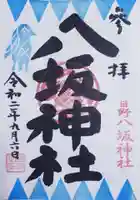 奉拝
八坂神社
野八坂神社
令和二年九月六日